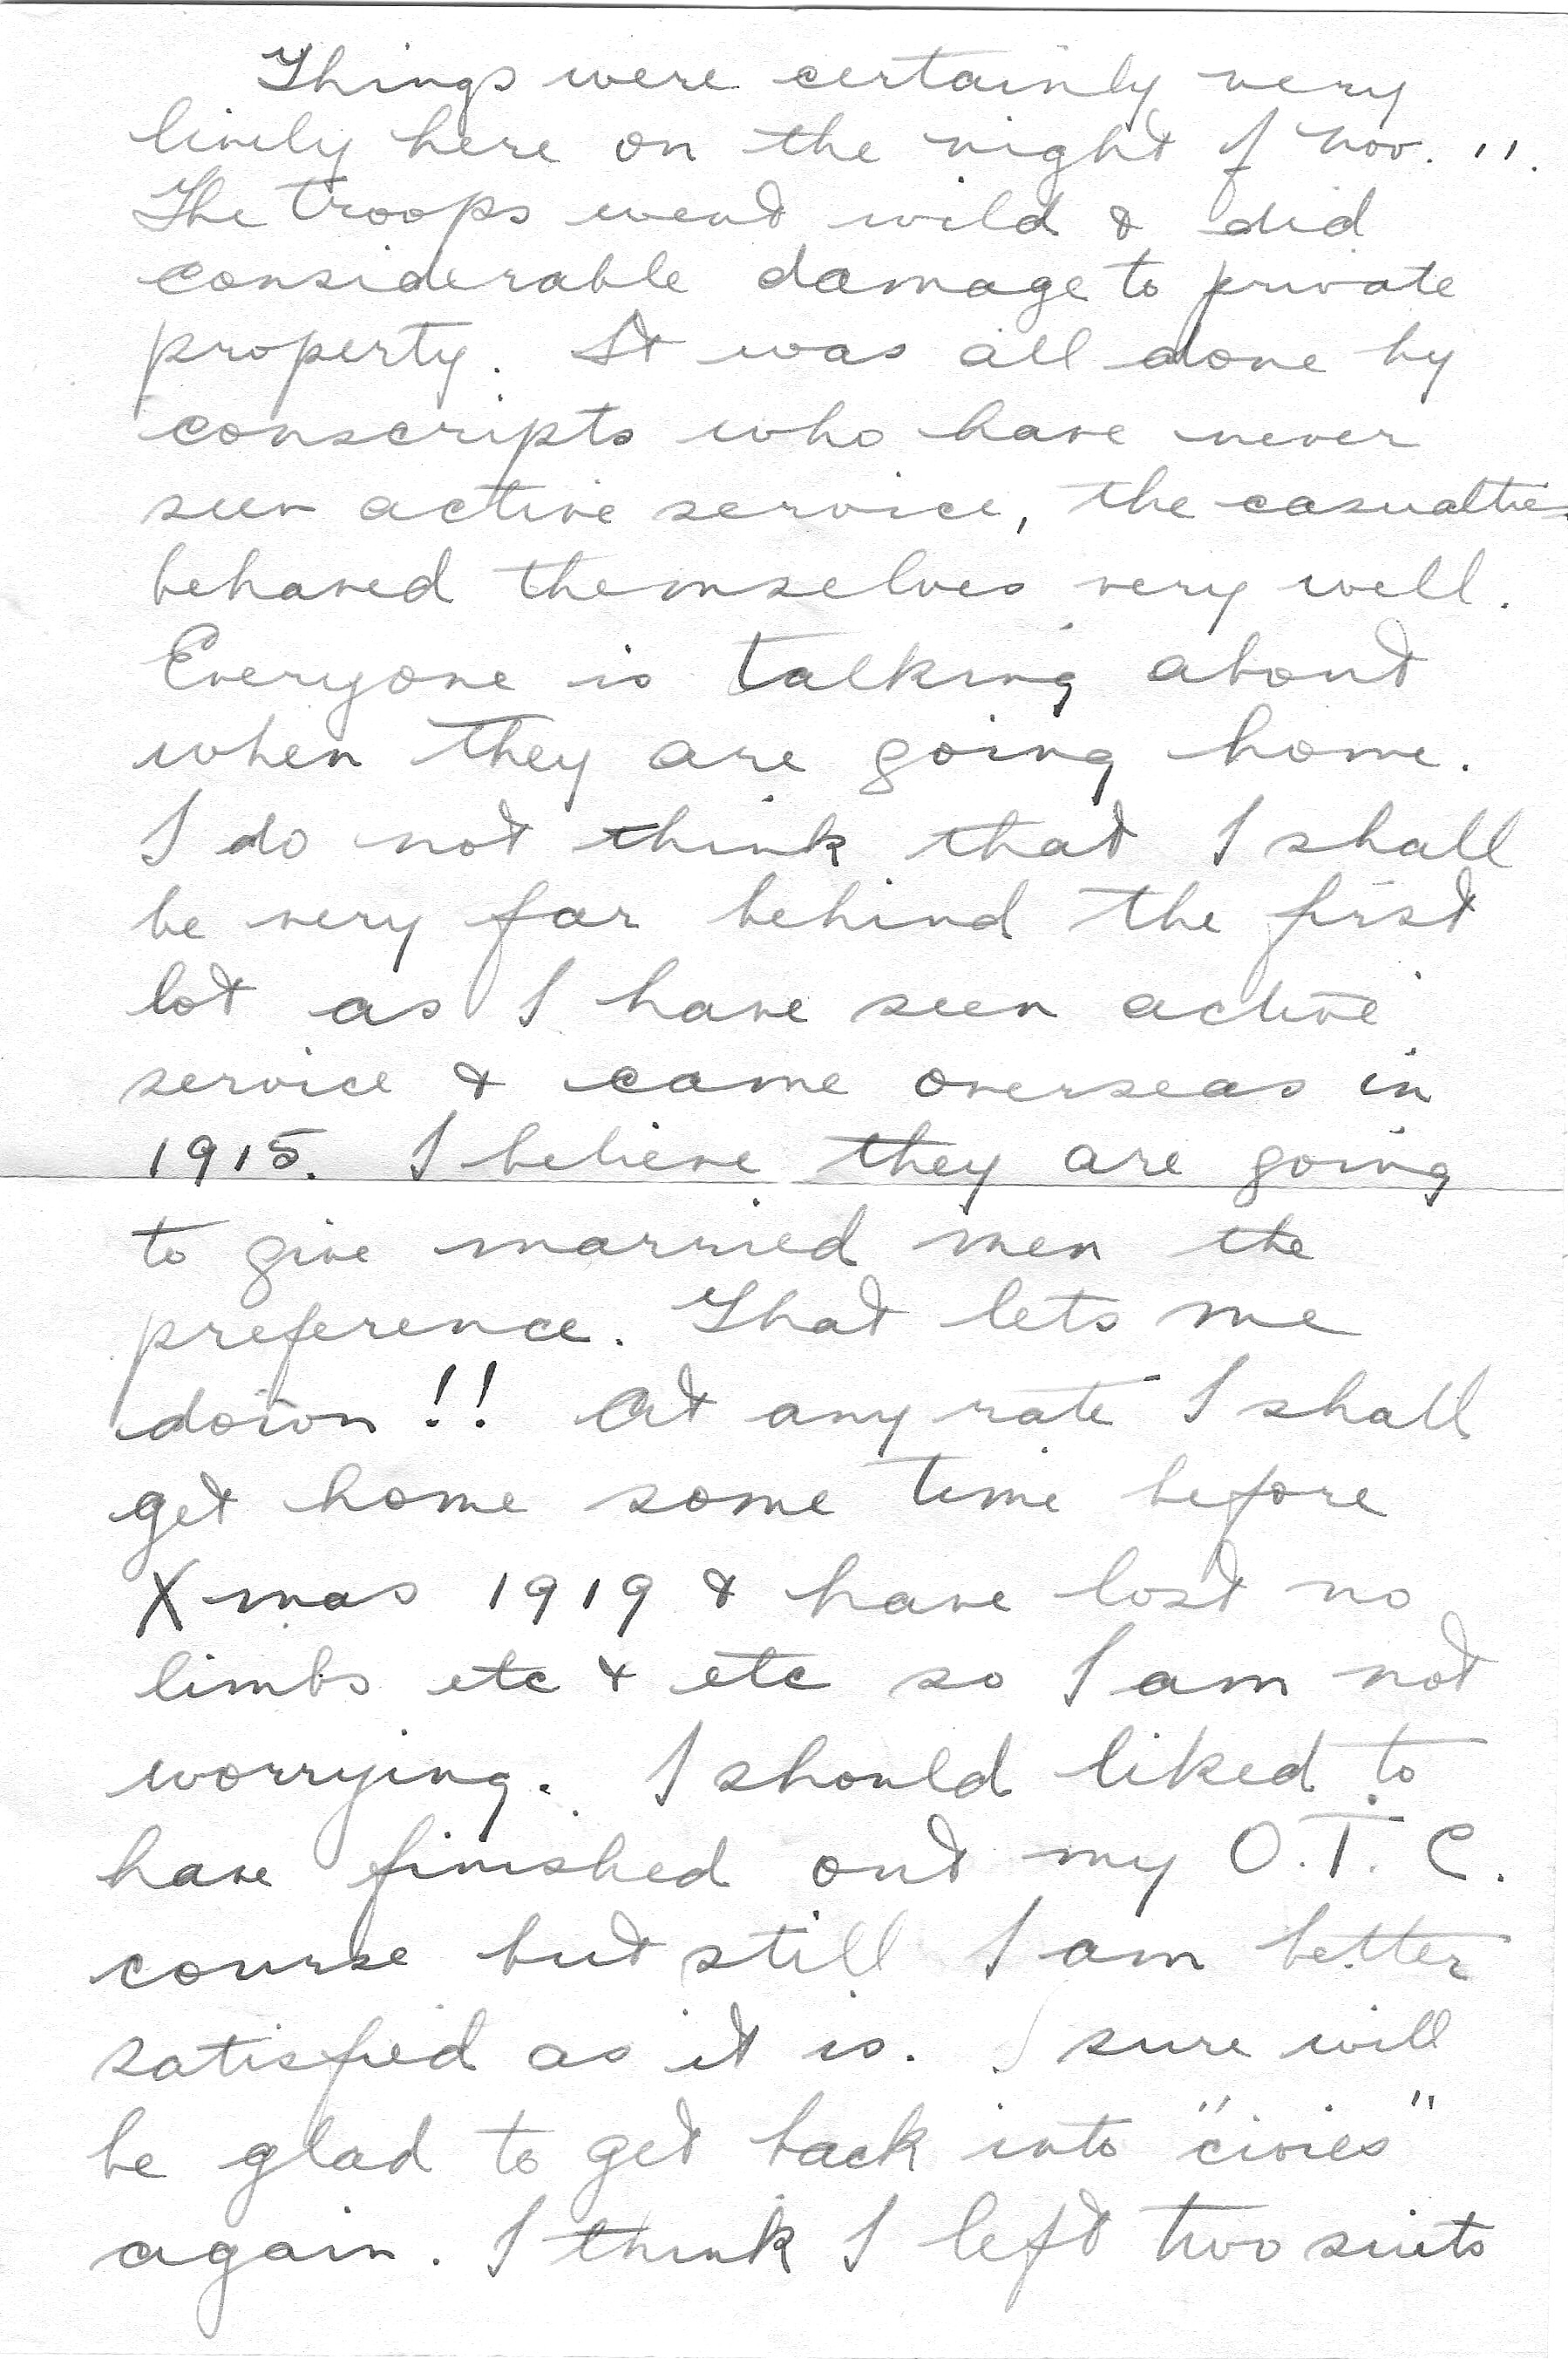 Things were certainly very
lively here on the night of Nov. 11.
The troops went wild & did
considerable damage to private
property. It was all done by
conscripts who have never
seen active service, the casualties
behaved themselves very well.
Everyone is talking about
when they are going home.
I do not think that I shall
be very far behind the first
lot as I have seen active
service & came overseas in
1915. I believe they are going
to give married men the
preference. That lets me
down!! At any rate I shall
get home some time before
Xmas 1919 & have lost no
limbs etc & etc so I am not
worrying. I should liked to
have finished out my O.T.C.
course but still I am better
satisfied as it is. I sure will
be glad to get back into "civies"
again. I think I left two suits